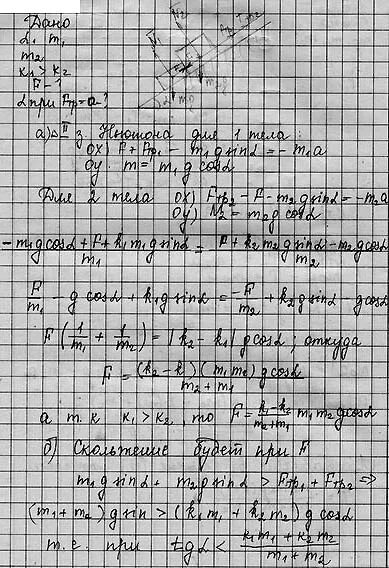 Дано
α, m₁
m₂
k₁ > k₂
F - ?
α при
а) II з. Ньютона для 1 тела:
OX) F + Fтр₁ - m₁g sinα = -m₁a
Oy: m = m₁g cosα
Для 2 тела OX) Fтр₂ - F - m₂g sinα = -m₂a
Oy) N₂ = m₂g cosα
(-m₁g cosα + F + k₁m₁g sinα)/m₁ = (F + k₂m₂g sinα - m₂g cosα)/m₂
F/m₁ - g cosα + k₁g sinα = -F/m₂ + k₂g sinα - g cosα
F(1/m₁ + 1/m₂) = |k₂ - k₁| g cosα; откуда
F = (k₂ - k)(m₁m₂) g cosα/(m₂ + m₁)
а т.к k₁ > k₂, то F = (k₁ - k₂)/(m₂ + m₁) m₁m₂g cosα
б) Скольжение будет при F
m₁g sinα + m₂g sinα > Fтр₁ + Fтр₂ ⇒
(m₁ + m₂) g sin > (k₁m₁ + k₂m₂) g cosα
т.е. при tgα < (k₁m₁ + k₂m₂)/(m₁ + m₂)